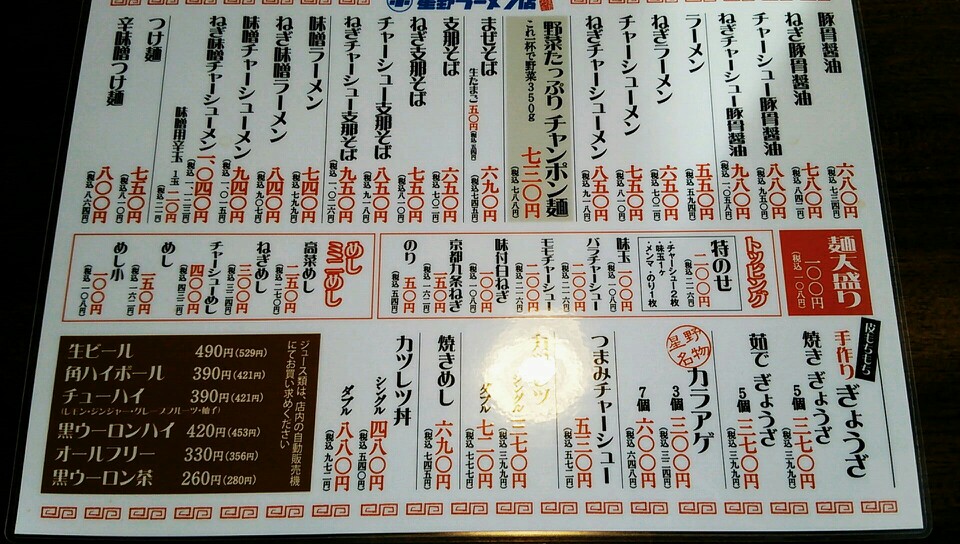 星野ラーメン店
豚骨醤油 六八〇円(税込 七三四円)
ねぎ豚骨醤油 七八〇円(税込 八四二円)
チャーシュー豚骨醤油 八八〇円
ねぎチャーシュー豚骨醤油 九八〇円(税込 一、〇五八円)
ラーメン 五五〇円
ねぎラーメン 六五〇円
チャーシューメン 七五〇円(税込 八一〇円)
ねぎチャーシューメン 八五〇円(税込 九一八円)
野菜たっぷり チャンポン麺 七三〇円(税込 七八八円)
これ一杯で野菜350g
まぜそば 六九〇円(税込 七四五円)
生たまご 五〇円(税込 五四円)
支那そば 六五〇円
ねぎ支那そば 七五〇円(税込 八一〇円)
チャーシュー支那そば 八五〇円(税込 九一八円)
ねぎチャーシュー支那そば 九五〇円(税込 一、〇二六円)
味噌ラーメン 七四〇円(税込 七九九円)
ねぎ味噌ラーメン 八四〇円(税込 九〇七円)
味噌チャーシューメン 九四〇円
ねぎ味噌チャーシューメン 一、〇四〇円
味噌用辛玉 1玉 一〇〇円
つけ麺 七五〇円(税込 八一〇円)
辛味噌つけ麺 八〇〇円(税込 八六四円)
麺大盛り 一〇〇円(税込 一〇八円)
トッピング
特のせ 二〇〇円(税込 二一六円)
・チャーシュー2枚
・味玉1ケ
・メンマ・のり1枚
味玉 一〇〇円(税込 一〇八円)
バラチャーシュー 二〇〇円(税込 二一六円)
モモチャーシュー 二〇〇円(税込 二一六円)
味付白ねぎ 一〇〇円(税込 一〇八円)
京都九条ねぎ 一五〇円(税込 一六二円)
のり 五〇円(税込 五四円)
めし
ミニめし
高菜めし 二五〇円(税込 二七〇円)
ねぎめし 三〇〇円(税込 三二四円)
チャーシューめし 四〇〇円(税込 四三二円)
めし 一五〇円
めし小 一〇〇円(税込 一〇八円)
皮もちもち
手作りぎょうざ
焼きぎょうざ 5個 三七〇円(税込 三九九円)
茹でぎょうざ 5個 三七〇円(税込 三九九円)
星野名物
カラアゲ
3個 三〇〇円(税込 三二四円)
7個 六〇〇円(税込 六四八円)
つまみチャーシュー 五三〇円(税込 五七二円)
シングル 三七〇円
ダブル 七二〇円(税込 七七七円)
焼きめし 六九〇円(税込 七四五円)
カツレツ丼
シングル 四八〇円
ダブル 八八〇円
ジュース類は、店内の自動販売機
にてお買い求めください
生ビール 490円(529円)
角ハイボール 390円(421円)
チューハイ 390円(421円)
(レモン・ジンジャー・グレープフルーツ・柚子)
黒ウーロンハイ 420円(453円)
オールフリー 330円(356円)
黒ウーロン茶 260円(280円)